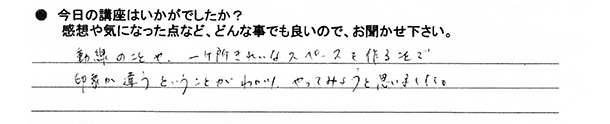 ● 今日の講座はいかがでしたか？
感想や気になった点など、どんな事でも良いので、お聞かせ下さい。
動線のことや、一ヶ所きれいなスペースを作ることで
印象が違うということがわかり、やってみようと思いました。